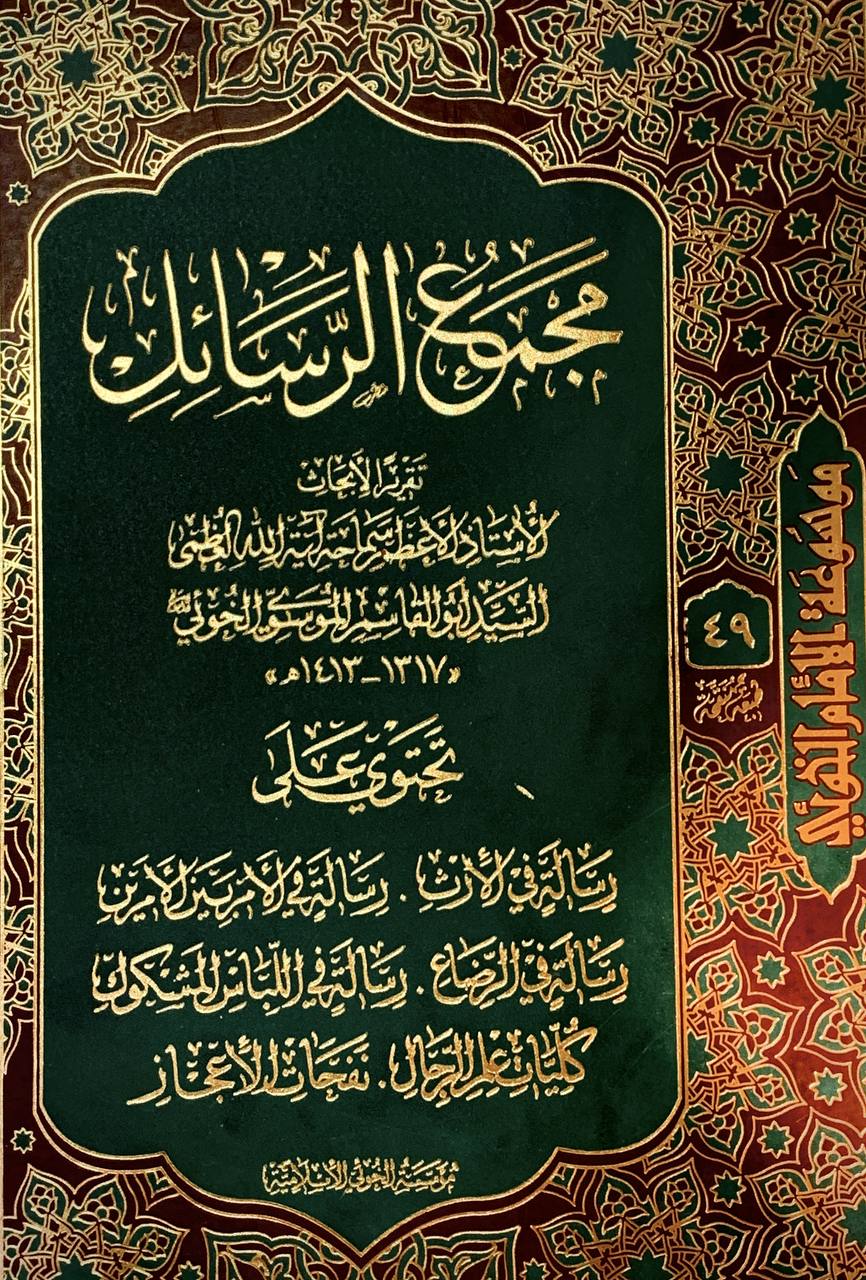 مجموع الرسائل
تقرير الأبحاث
الأستاذ الأعظم سماحة آية الله العظمى
السيد أبو القاسم الموسوي الخوئي
«١٣١٧-١٤١٣ه‍»
تحتوي على
رسالة في الأرث . رسالة في الأمر بين الأمرين
رسالة في الرضاع . رسالة في اللباس المشكوك
كليات علم الرجال . نفحات الأعجاز
مؤسسة الخوئي الإسلامية
موسوعة الإمام الخوئي
٤٩
طبعة منقحة